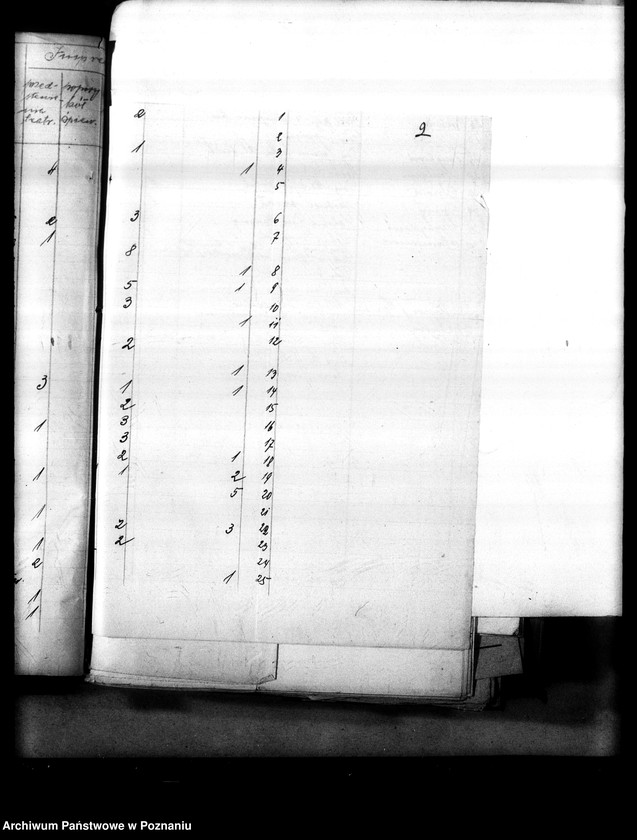 2 1
9
2
1 3
4 1 4
5
2 3 6
1 7
8
1 8
5 1 9
3 10
1 11
2 12
1 13
3 1 1 14
2 15
1 3 16
3 17
2 1 18
1 1 2 19
5 20
1 21
2 3 22
1 2 23
2 24
1 1 25
1
Archiwum Państwowe w Poznaniu